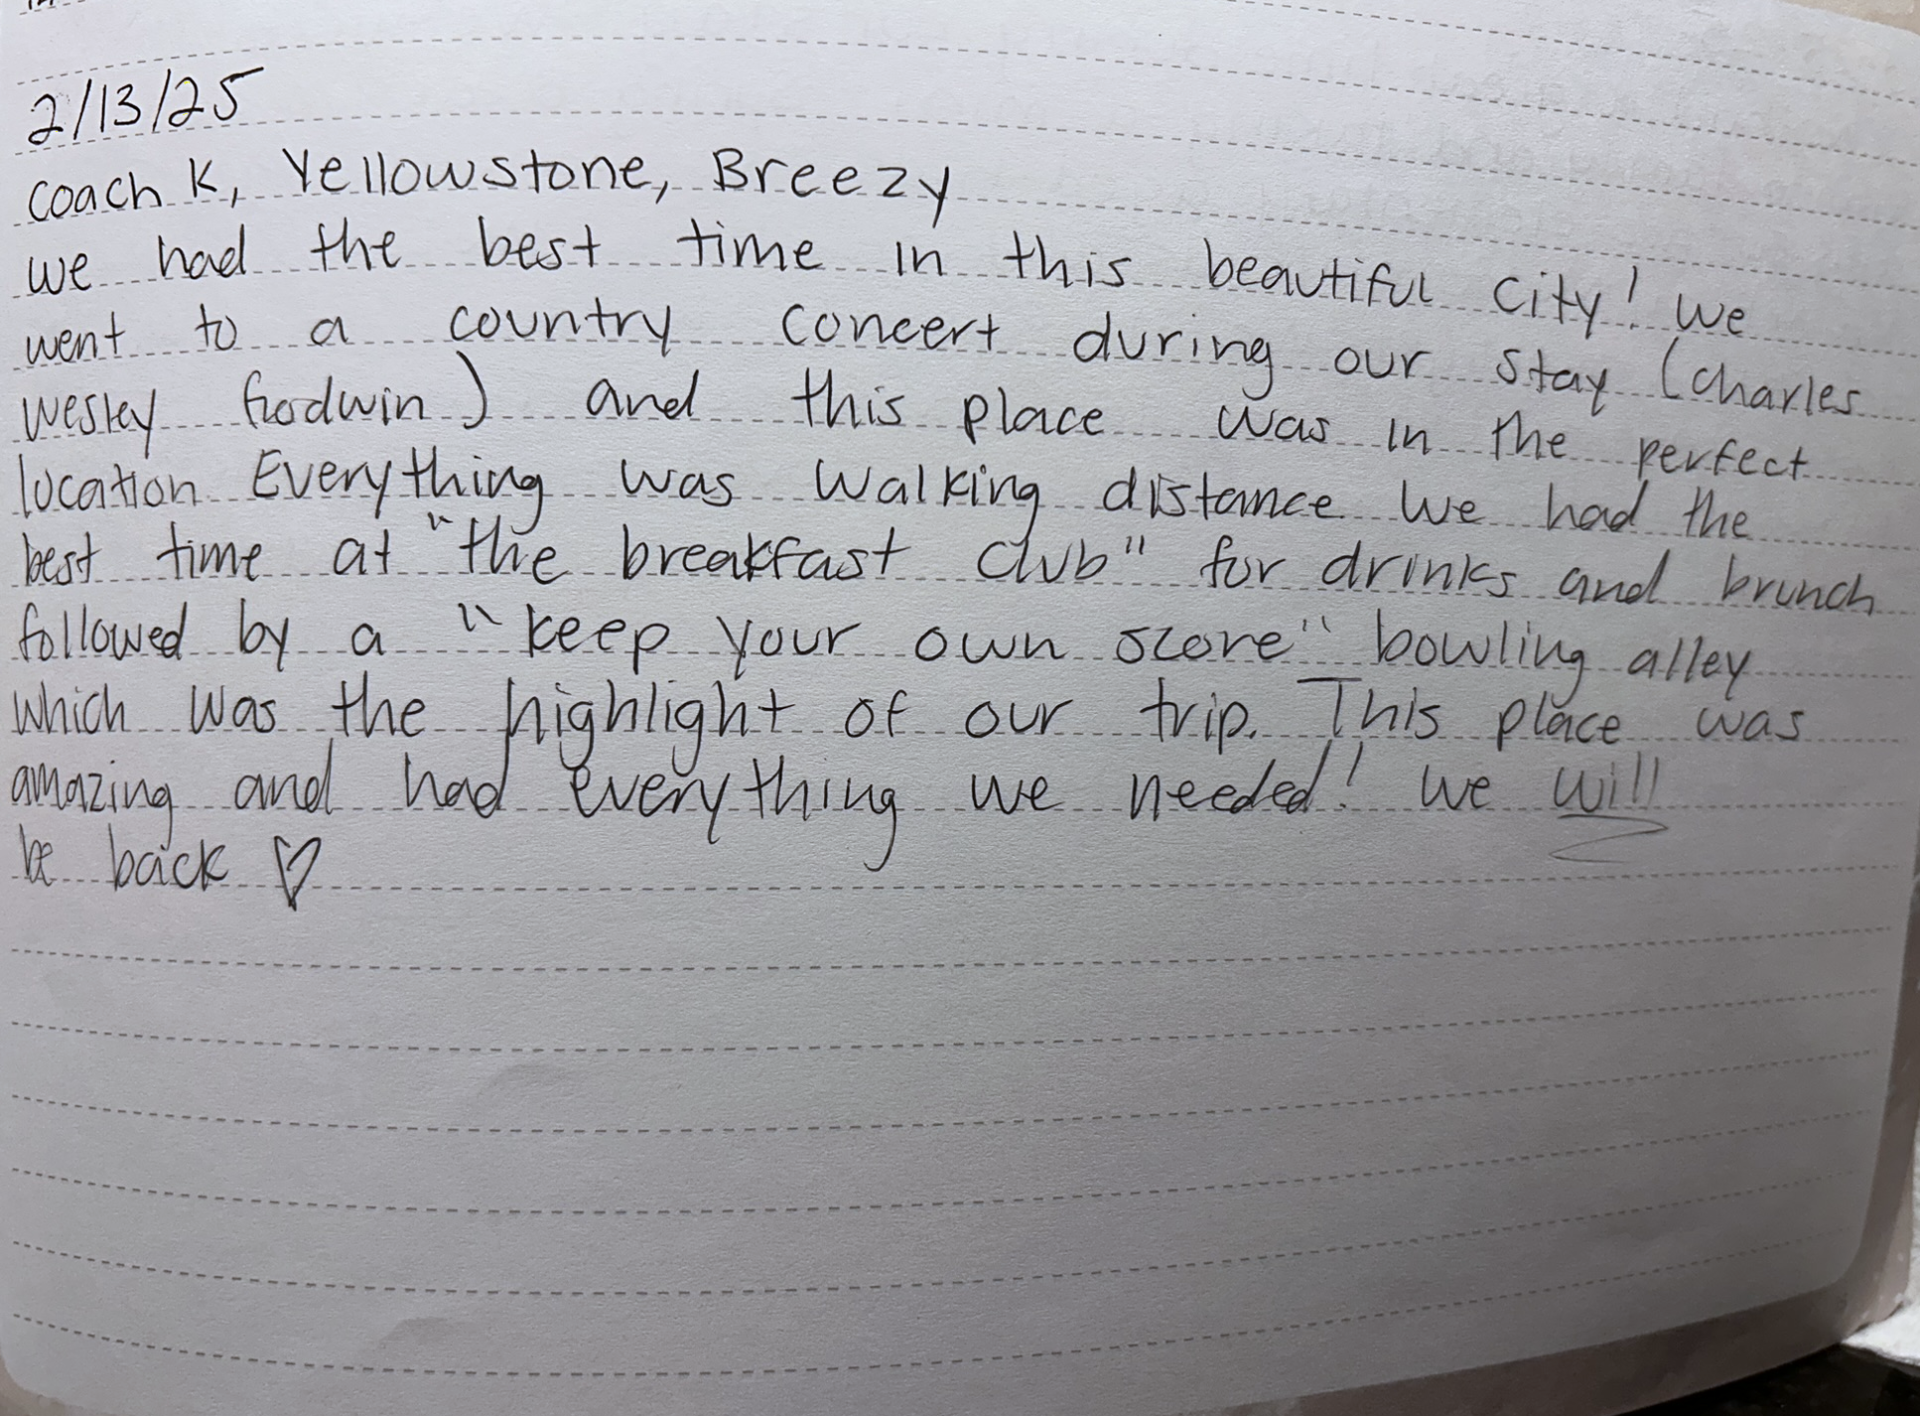 2/13/25
Coach K, Yellowstone, Breezy
we had the best time in this beautiful city! we
went to a country concert during our stay (Charles
Wesley Godwin) and this place was in the perfect
location Everything was walking distance we had the
best time at "the breakfast club" for drinks and brunch
followed by a "keep your own score" bowling alley
which was the highlight of our trip. This place was
amazing and had everything we needed! we will
be back ♡